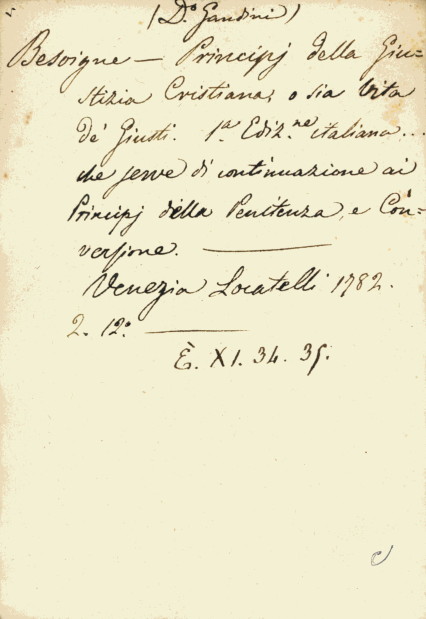 (D.º Gandini)
Besoigne — Principj della Giu=
stizia Cristiana, o sia Vita
de' Giusti. 1ª Ediz.ne italiana...
che serve di continuazione ai
Principj della Penitenza, e Con=
versione. —
Venezia Locatelli 1782.
2. 12º —
È. XI. 34. 35.